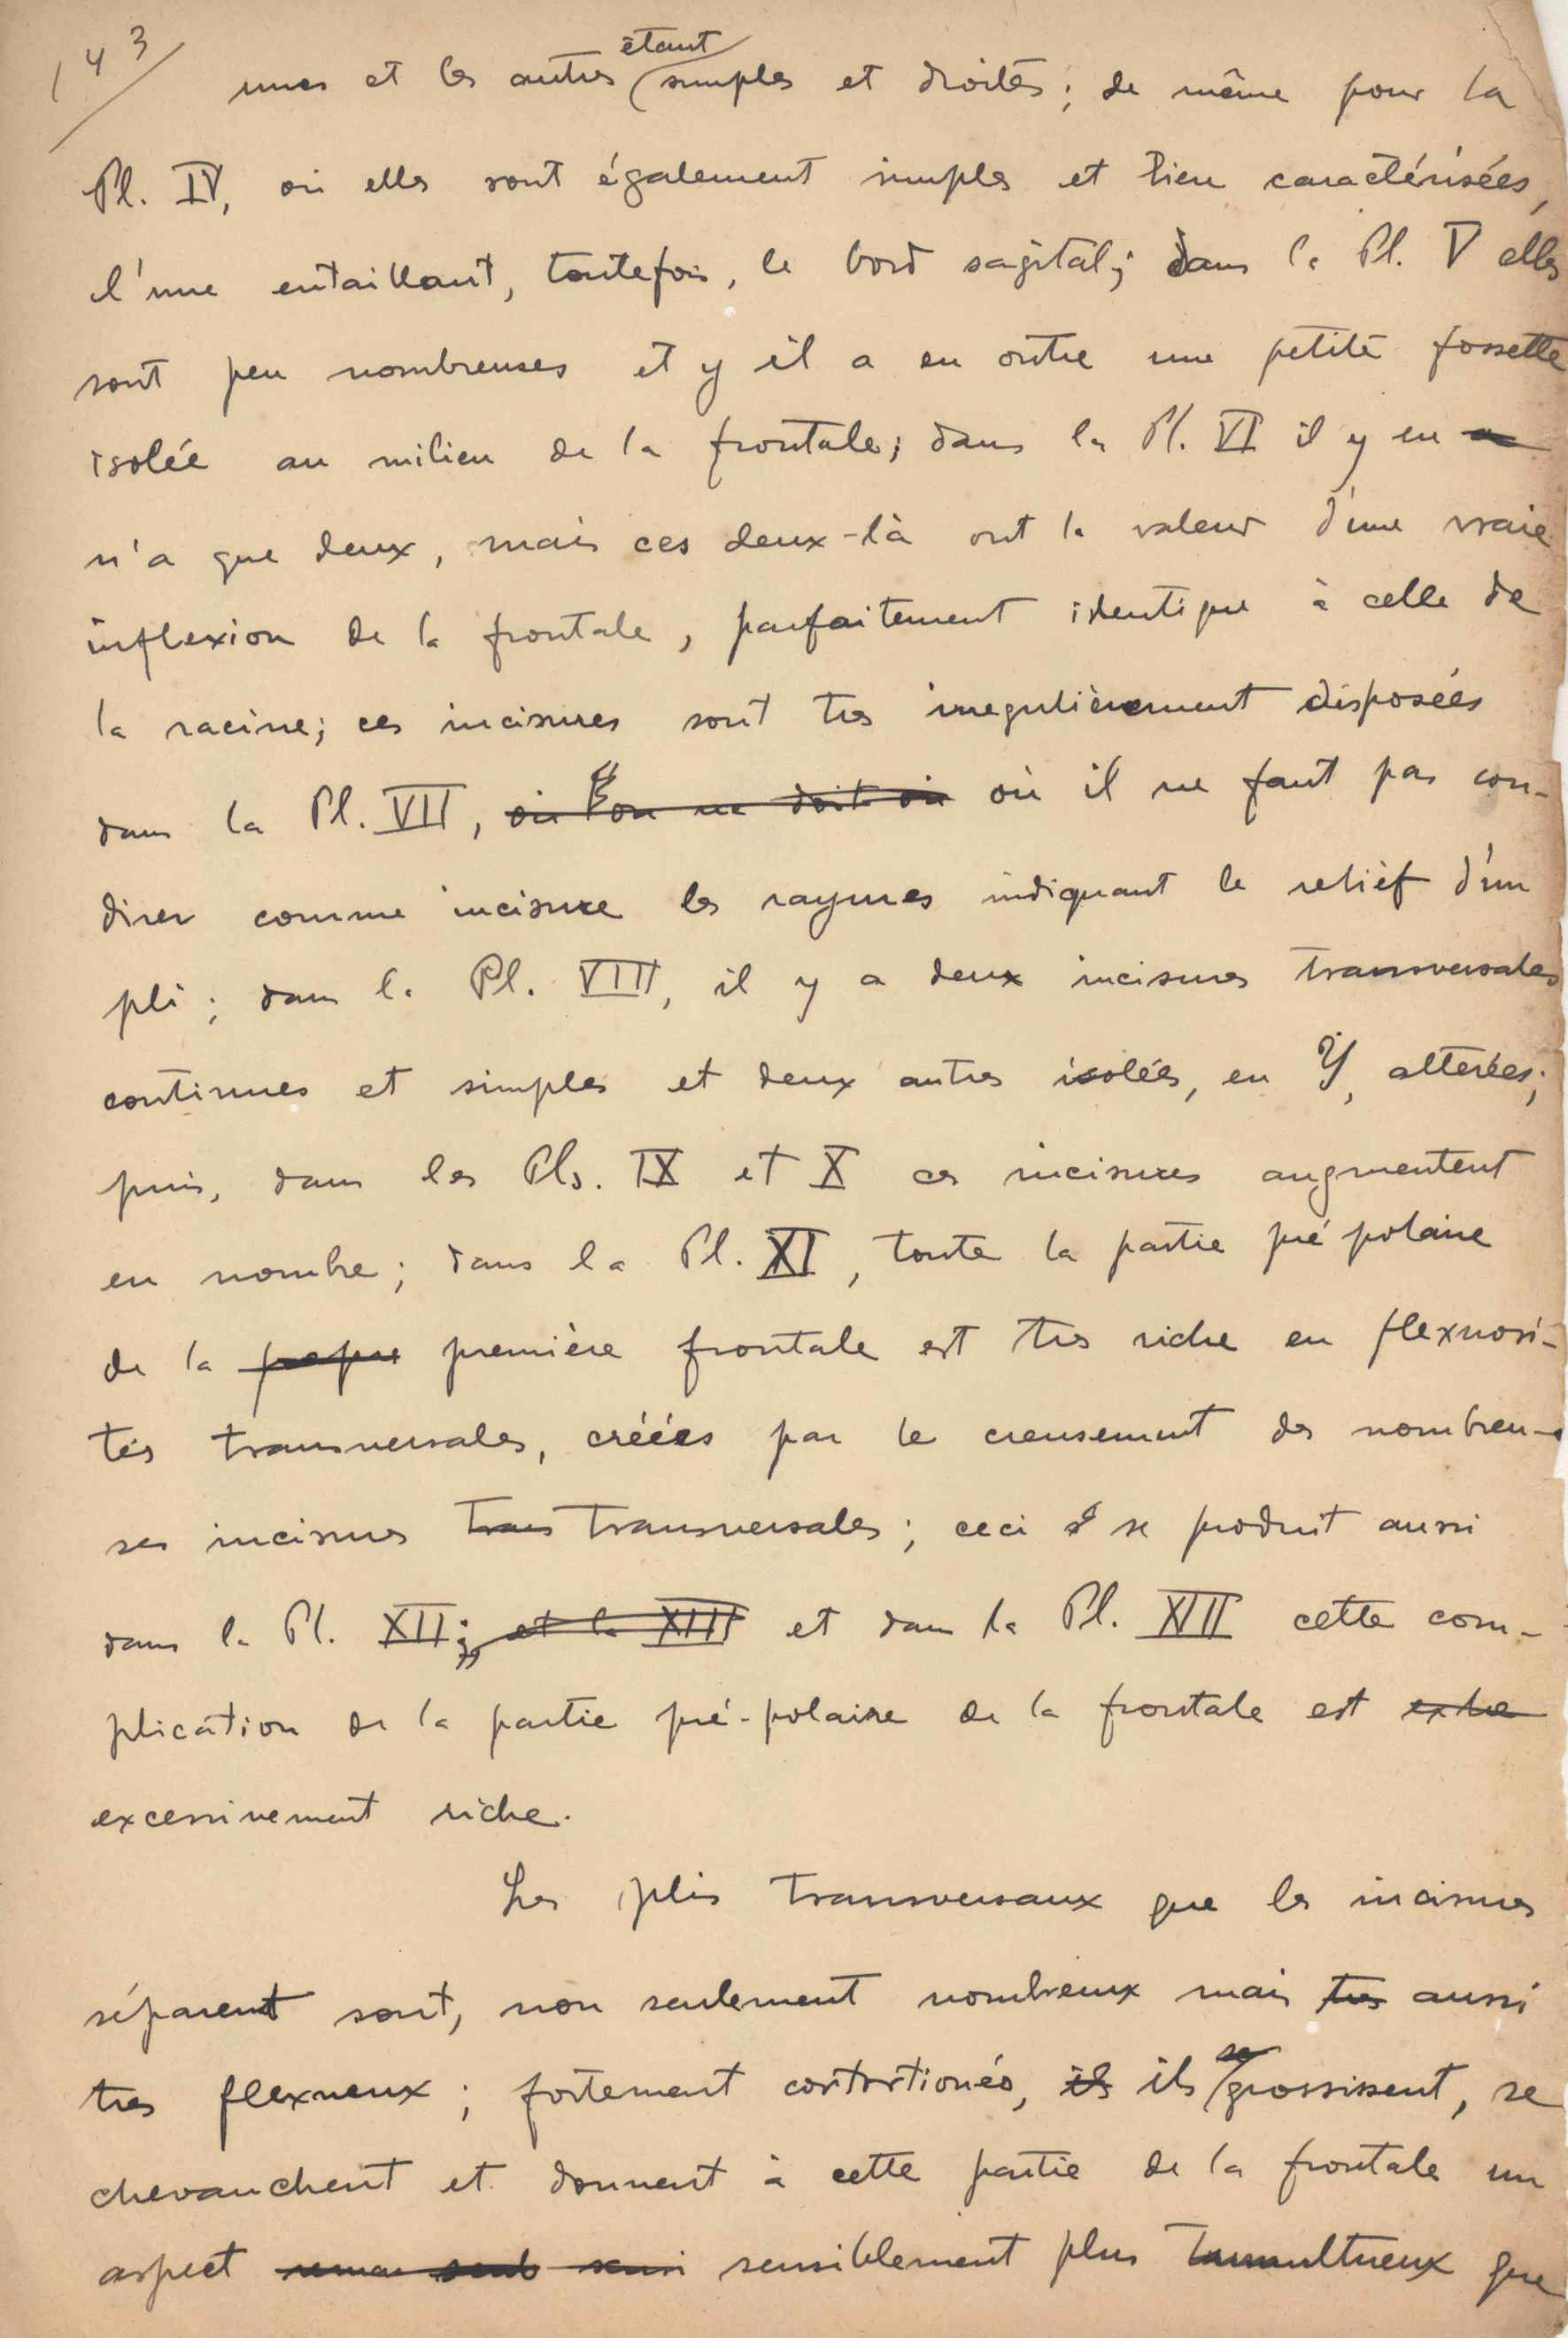 143
unes et les autres étant simples et droites; de même pour la
Pl. IV, où elles sont également simples et bien caractérisées,
l'une entaillant, toutefois, le bord sagital; dans la Pl. V elles
sont peu nombreuses et y il a en outre une petite fossette
isolée au milieu de la frontale; dans la Pl. VI il y en a
n'a que deux, mais ces deux-là ont la valeur d'une vraie
inflexion de la frontale, parfaitement identique à celle de
la racine; ces incisures sont tres irregulièrement disposées
dans la Pl. VII, où l'on ne doit où il ne faut pas con-
direr comme incisure les rayures indiquant le relief d'un
pli; dans la Pl. VIII, il y a deux incisures transversales
continues et simples et deux autres isolées, en Y, alterées;
puis, dans les Pls. IX et X ces incisures augmentent
en nombre; dans la Pl. XI, toute la partie pré polaire
de la première frontale est tres riche en flexuosi-
tés transversales, créées par le creusement des nombreu-
ses incisures trans transversales; ceci se produit aussi
dans la Pl. XII; et la XIII et dans la Pl. XIII cette com-
plication de la partie pré-polaire de la frontale est extre
excessivement riche.
Les plis transversaux que les incisures
séparent sont, non seulement nombreux mais tres aussi
tres flexueux; fortement contortionés, ils ils se grossissent, se
chevauchent et donnent à cette partie de la frontale un
aspect sensiblement plus tumultueux que